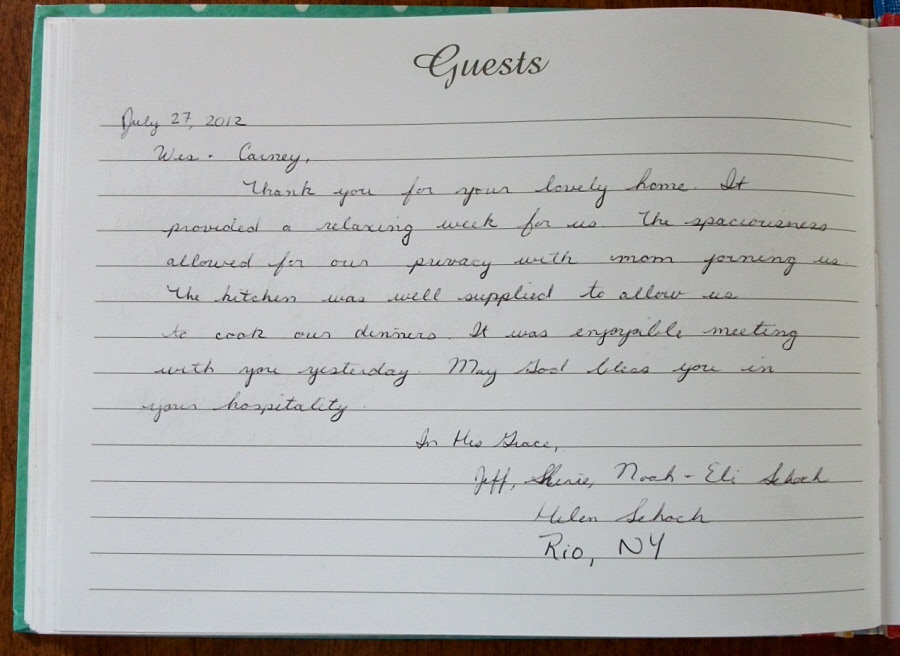 Guests
July 27, 2012
Wes + Carney,
Thank you for your lovely home. It
provided a relaxing week for us. The spaciousness
allowed for our privacy with mom joining us.
The kitchen was well supplied to allow us
to cook our dinners. It was enjoyable meeting
with you yesterday. May God bless you in
your hospitality.
In His Grace,
Jeff, Sherie, Noah + Eli Schoch
Helen Schoch
Rio, NY